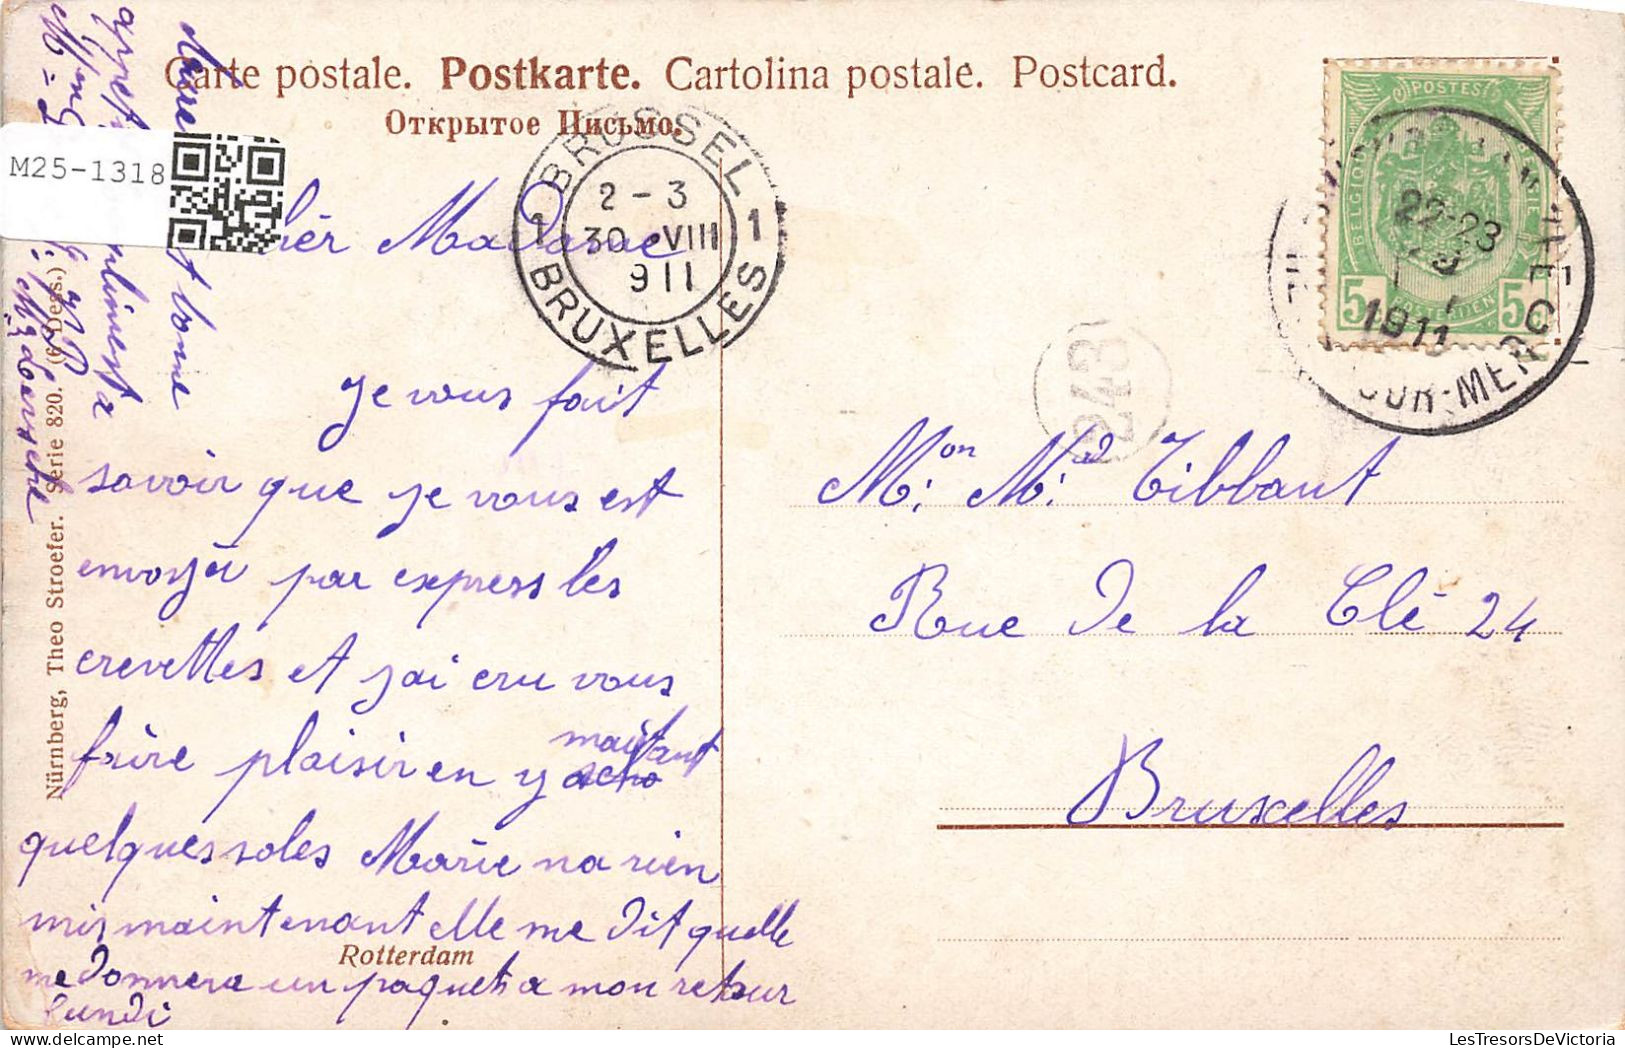 Carte postale. Postkarte. Cartolina postale. Postcard.
Открытое Письмо.
M25-1318
BRUSSEL
1 2 - 3 1
30 VIII
911
BRUXELLES
POSTES
BELGIQUE
22-23
1911
SUR-MER
5 POSTERIJEN 5
243
Chèr Madame
je vous fait
savoir que je vous est
envoyér par express les
crevettes et j'ai cru vous
faire plaisir en y
quelques soles Marie na rien
mis maintenant elle me dit quelle
me donnera un paquet a mon retour
lundi
Mon Md Tibbaut
Rue de la Clé 24
Bruxelles
Nürnberg, Theo Stroefer. Serie 820. (6 Dess.)
Rotterdam
LesTresorsDeVictoria